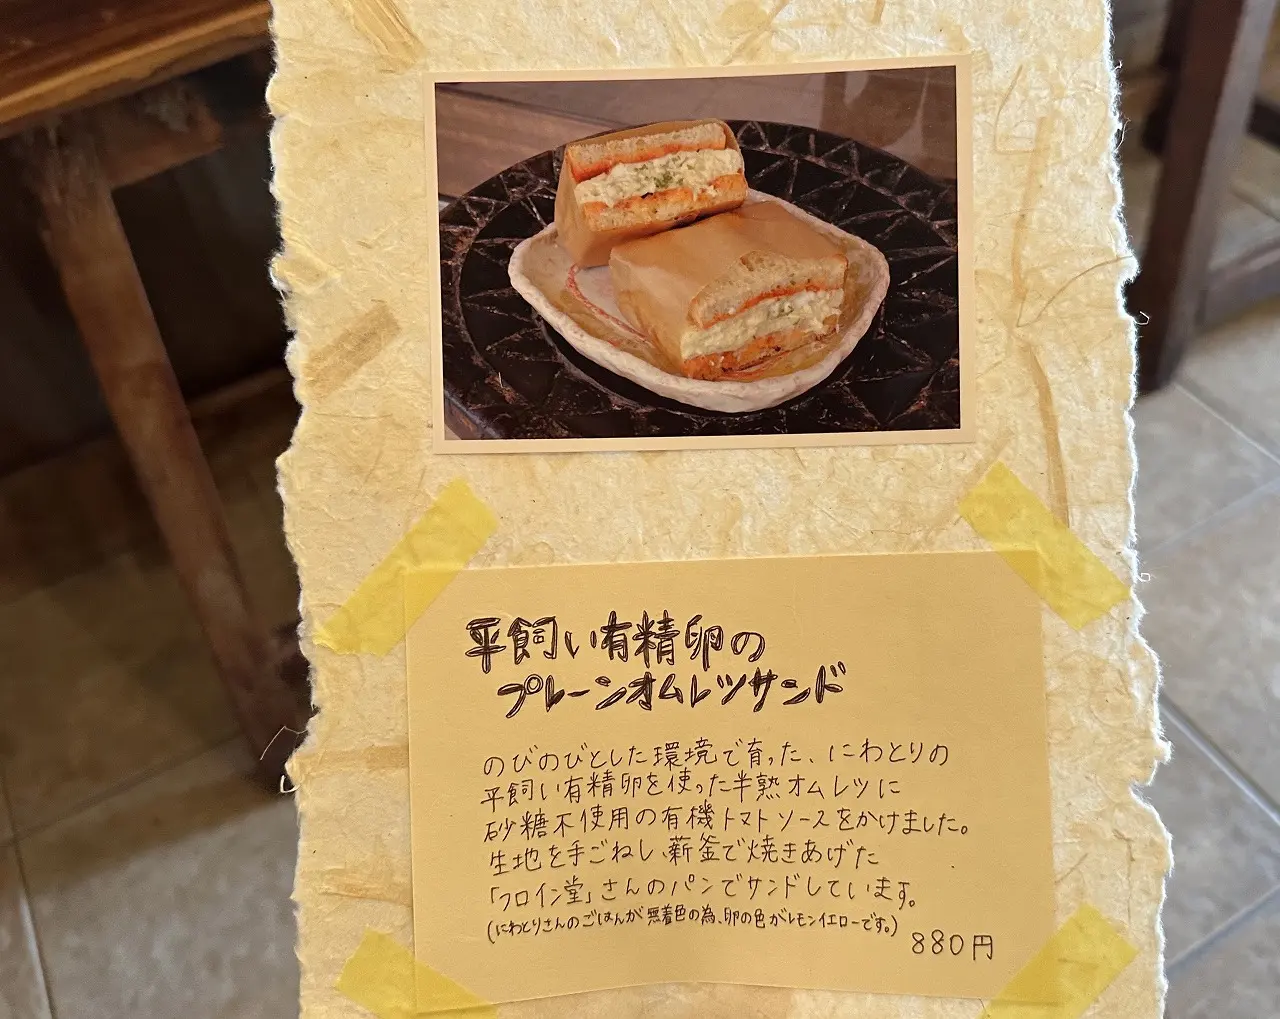 平飼い有精卵の
プレーンオムレツサンド
のびのびとした環境で育った、にわとりの
平飼い有精卵を使った半熟オムレツに
砂糖不使用の有機トマトソースをかけました。
生地を手ごねし、薪釜で焼きあげた
「フロイン堂」さんのパンでサンドしています。
(にわとりさんのごはんが無着色の為、卵の色がレモンイエローです。)
880円